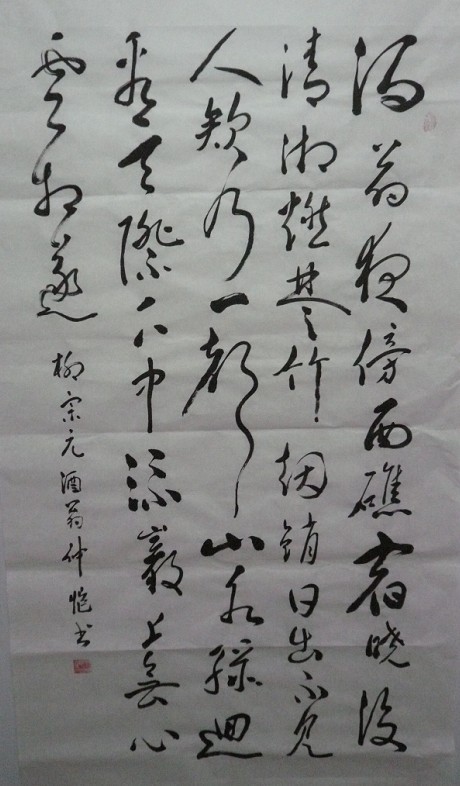 渔翁夜傍西礁宿晓汲
清湘燃楚竹烟销日出不见
人欸乃一声山水綠迴
看天際下中流巖上無心
雲相逐
柳宗元酒翁仲恺书